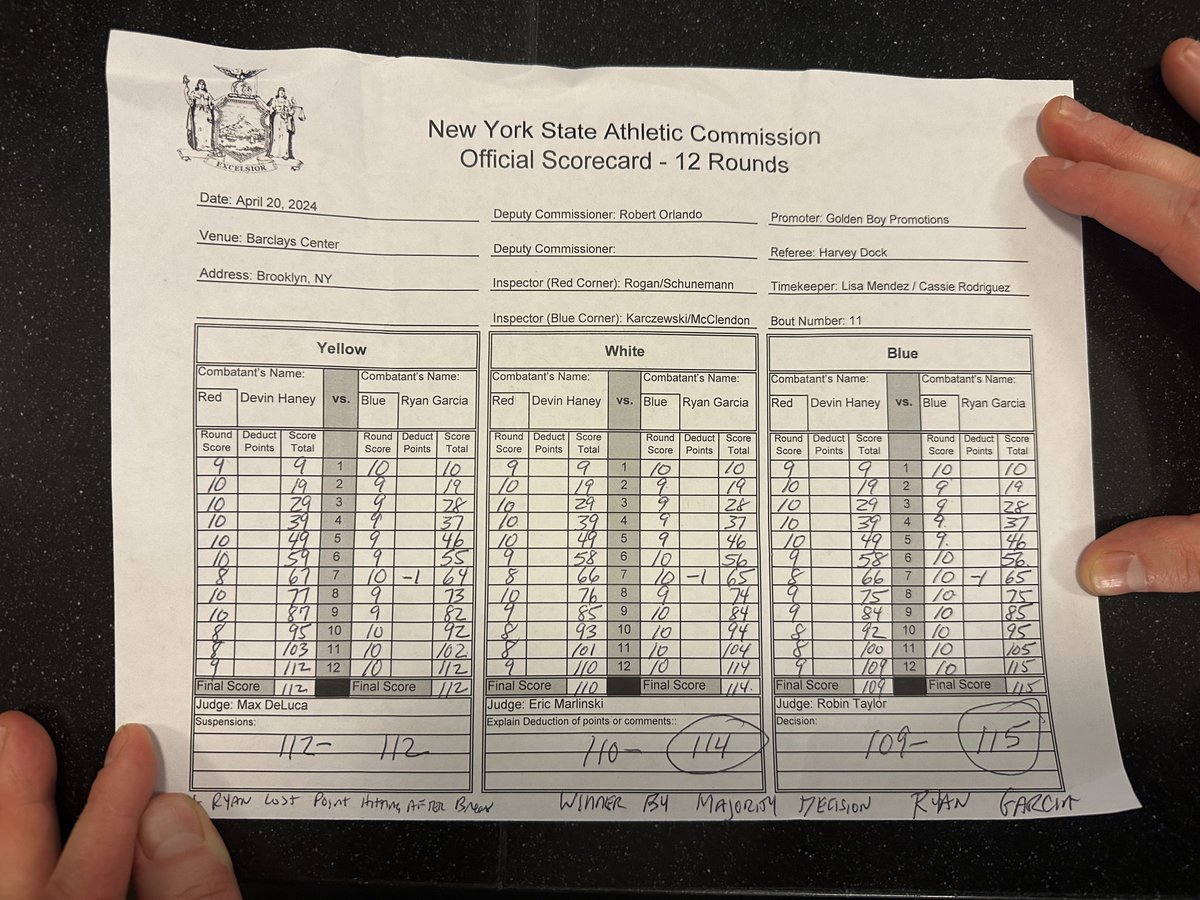 EXCELSIOR
New York State Athletic Commission
Official Scorecard - 12 Rounds
Date: April 20, 2024 Deputy Commissioner: Robert Orlando Promoter: Golden Boy Promotions
Venue: Barclays Center Deputy Commissioner: Referee: Harvey Dock
Address: Brooklyn, NY Inspector (Red Corner): Rogan/Schunemann Timekeeper: Lisa Mendez / Cassie Rodriguez
Inspector (Blue Corner): Karczewski/McClendon Bout Number: 11
Yellow White Blue
Combatant's Name: Combatant's Name: Combatant's Name: Combatant's Name: Combatant's Name: Combatant's Name:
Red Devin Haney vs. Blue Ryan Garcia Red Devin Haney vs. Blue Ryan Garcia Red Devin Haney vs. Blue Ryan Garcia
Round Deduct Score Round Deduct Score Round Deduct Score Round Deduct Score Round Deduct Score Round Deduct Score
Score Points Total Score Points Total Score Points Total Score Points Total Score Points Total Score Points Total
9 9 1 10 10 9 9 1 10 10 9 9 1 10 10
10 19 2 9 19 10 19 2 9 19 10 19 2 9 19
10 29 3 9 28 10 29 3 9 28 10 29 3 9 28
10 39 4 9 37 10 39 4 9 37 10 39 4 9 37
10 49 5 9 46 10 49 5 9 46 10 49 5 9 46
10 59 6 9 55 9 58 6 10 56 9 58 6 10 56
8 67 7 10 -1 64 8 66 7 10 -1 65 8 66 7 10 -1 65
10 77 8 9 73 10 76 8 9 74 9 75 8 10 75
10 87 9 9 82 9 85 9 10 84 9 84 9 10 85
8 95 10 10 92 8 93 10 10 94 8 92 10 10 95
8 103 11 10 102 8 101 11 10 104 8 100 11 10 105
9 112 12 10 112 9 110 12 10 114 9 109 12 10 115
Final Score 112 Final Score 112 Final Score 110 Final Score 114. Final Score 109 Final Score 115
Judge: Max DeLuca Judge: Eric Marlinski Judge: Robin Taylor
Suspensions: Explain Deduction of points or comments:: Decision:
112- 112 110- 114 109- 115
RYAN LOST POINT HITTING AFTER BREAK WINNER BY MAJORITY DECISION RYAN GARCIA